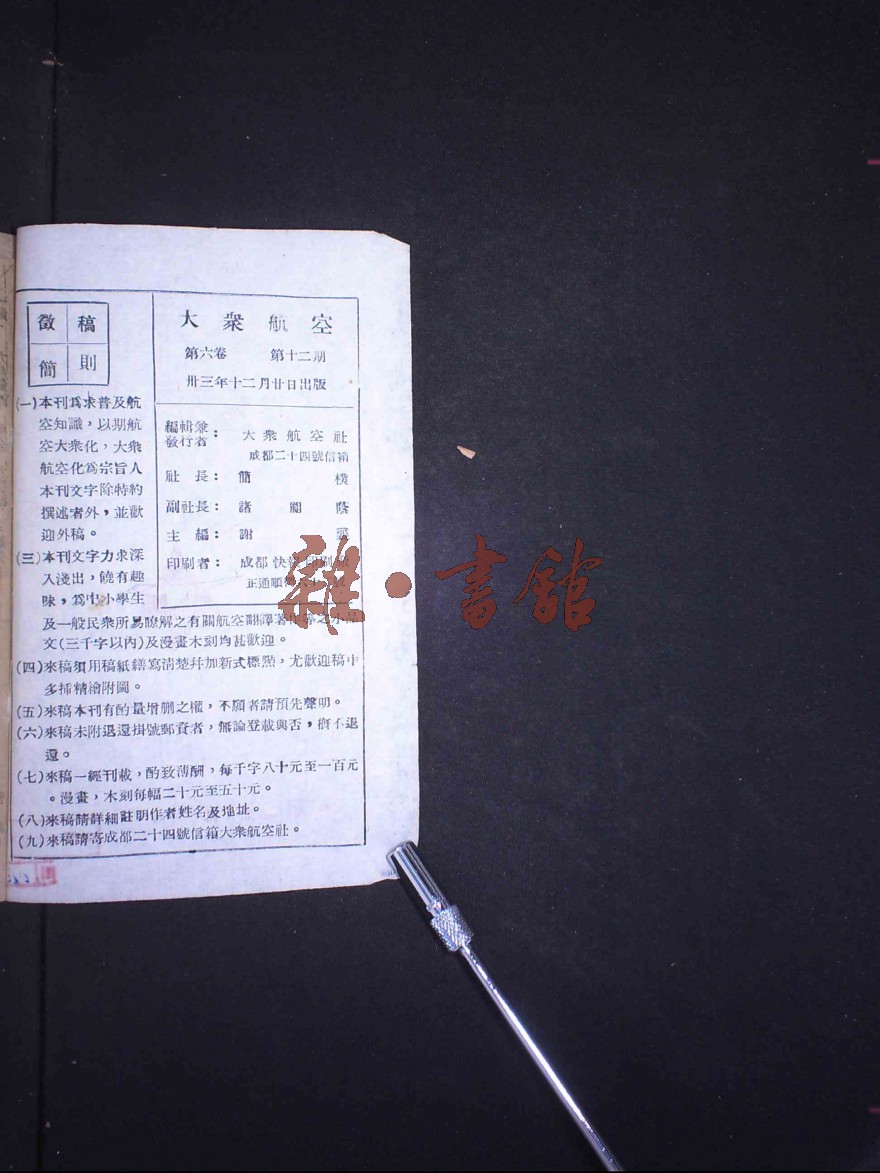 徵稿
簡則
大衆航空
第六卷 第十二期
卅三年十二月廿日出版
編輯兼
發行者：大衆航空社
成都二十四號信箱
社長：簡樸
副社長：諸閣蔭
主編：謝
印刷者：成都快報印刷
正通順街
(一)本刊爲求普及航
空知識，以期航
空大衆化，大衆
航空化爲宗旨人
本刊文字除特約
撰述者外，並歡
迎外稿。
(三)本刊文字力求深
入淺出，饒有趣
味，爲中小學生
及一般民衆所易瞭解之有關航空翻譯著作之小品
文(三千字以內)及漫畫木刻均甚歡迎。
(四)來稿須用稿紙繕寫淸楚幷加新式標點，尤歡迎稿中
多揷精繪附圖。
(五)來稿本刊有酌量增删之權，不願者請預先聲明。
(六)來稿未附退還掛號郵資者，無論登載與否，槪不退
還。
(七)來稿一經刊載，酌致薄酬，每千字八十元至一百元
。漫畫，木刻每幅二十元至五十元。
(八)來稿請詳細註明作者姓名及地址。
(九)來稿請寄成都二十四號信箱大衆航空社。
雜·書館